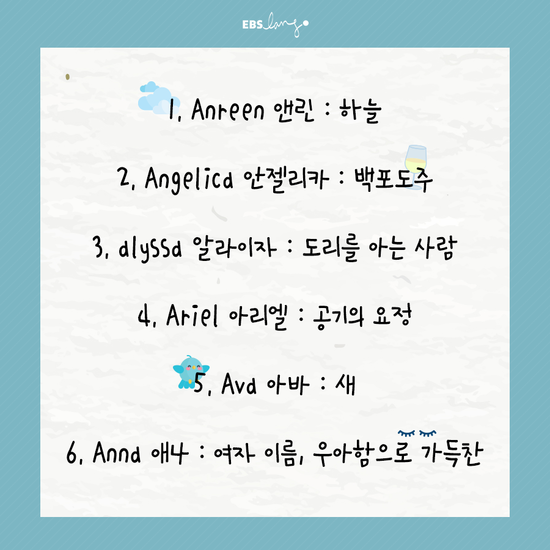 EBS lang
1, Anreen 앤린 : 하늘
2, Angelica 안젤리카 : 백포도주
3, alyssa 알라이자 : 도리를 아는 사람
4, Ariel 아리엘 : 공기의 요정
5, Ava 아바 : 새
6, Anna 애나 : 여자 이름, 우아함으로 가득찬